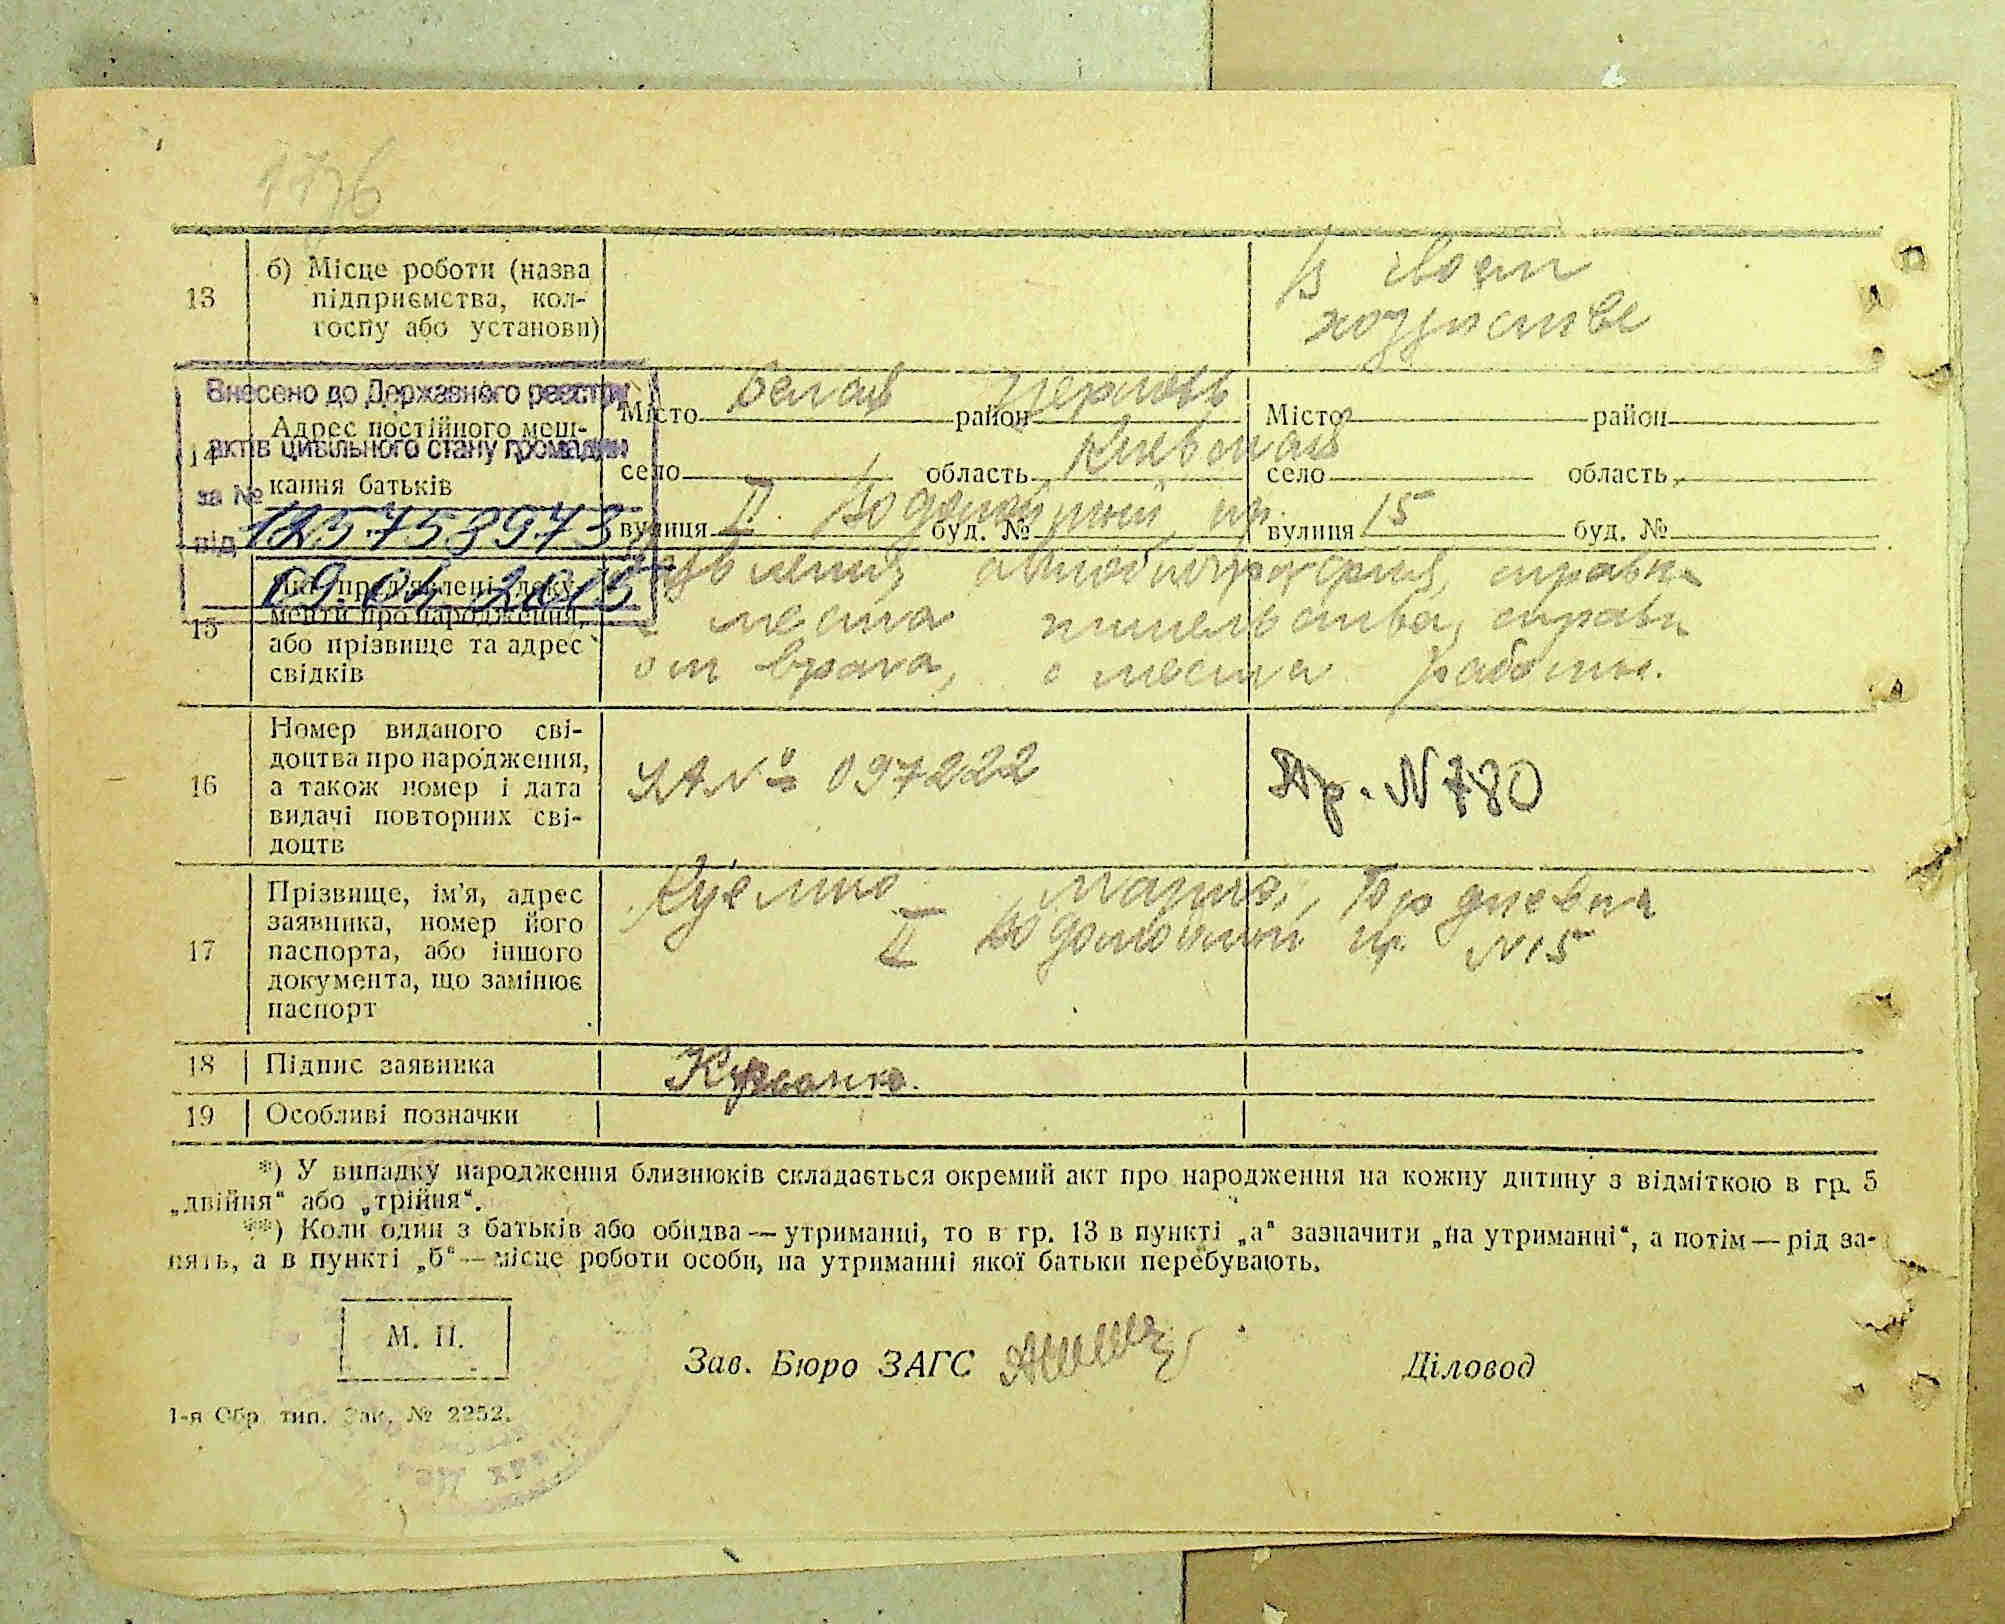 176
13
б) Місце роботи (назва
підприємства, кол-
госпу або установи)
В своем
хозяйстве
Внесено до Державного реєстру
актів цивільного стану громадян
за №
123758973
від
09 04 2015
14
Адрес постійного меш-
кання батьків
Місто Белая район Церковь
село область Киевская
вулиця II буд. №
Місто район
село область
вулиця 15 буд. №
15
менти про народження,
або прізвище та адрес
свідків
справка
с места жительства, справка
от врача, с места работы.
16
Номер виданого сві-
доцтва про народження,
а також номер і дата
видачі повторних сві-
доцтв
№ 097222
Ар. N 780
17
Прізвище, ім'я, адрес
заявника, номер його
паспорта, або іншого
документа, що замінює
паспорт
Мария
II N 15
18
Підпис заявника
19
Особливі позначки
*) У випадку народження близнюків складається окремий акт про народження на кожну дитину з відміткою в гр. 5
„двійня“ або „трійня“.
**) Коли один з батьків або обидва — утриманці, то в гр. 13 в пункті „а“ зазначити „на утриманні“, а потім — рід за-
нять, а в пункті „б“ — місце роботи особи, на утриманні якої батьки перебувають.
М. П.
Зав. Бюро ЗАГС
Діловод
1-я Обр. тип. Зак. № 2252.